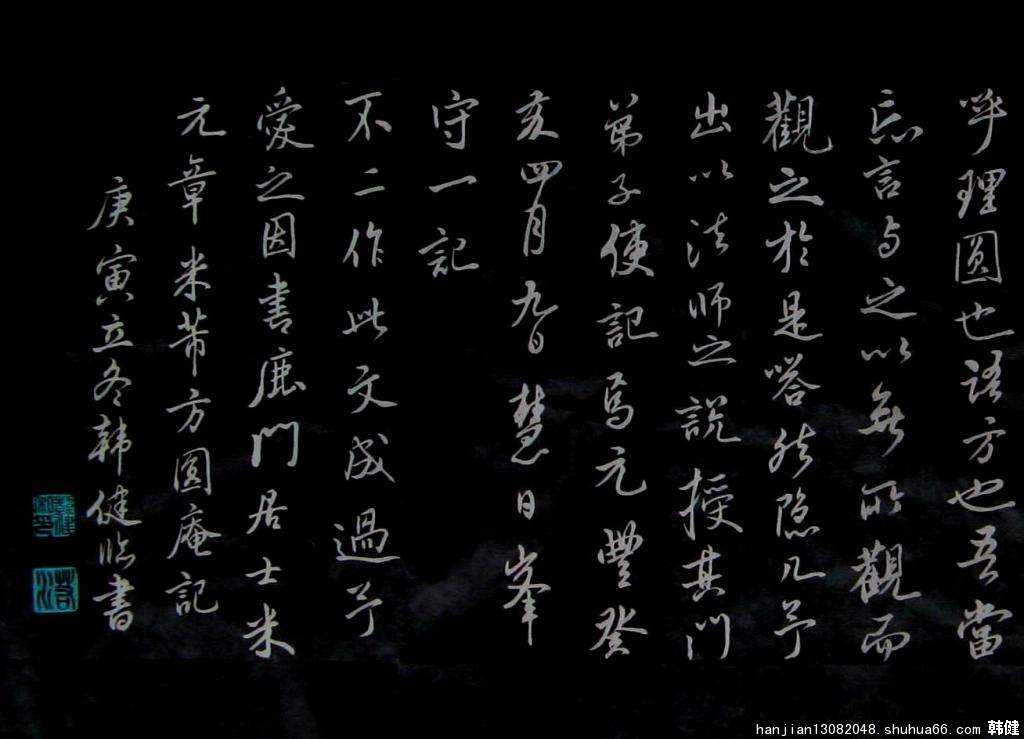 乎理圆也语方也吾當
忘言与之以無所觀而
觀之於是嗒然隐几予
出以法师之說授其門
弟子使記焉元豐癸
亥四月九日慧日峯
守一記
不二作此文成過予
愛之因書鹿門居士米
元章米芾方圆庵記
庚寅立冬韩健临書
hanjian13082048.shuhua66.com 韩健